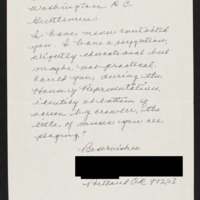 Washington D C
Gentlemen
I have never contacted
you. I have a suggestion,
slightly educational but
maybe not practical
Could you, during the
House of Representatives,
identify at bottom of
screen by crawler, the
title of music you are
playing."
Best wishes
Portland OR 97223